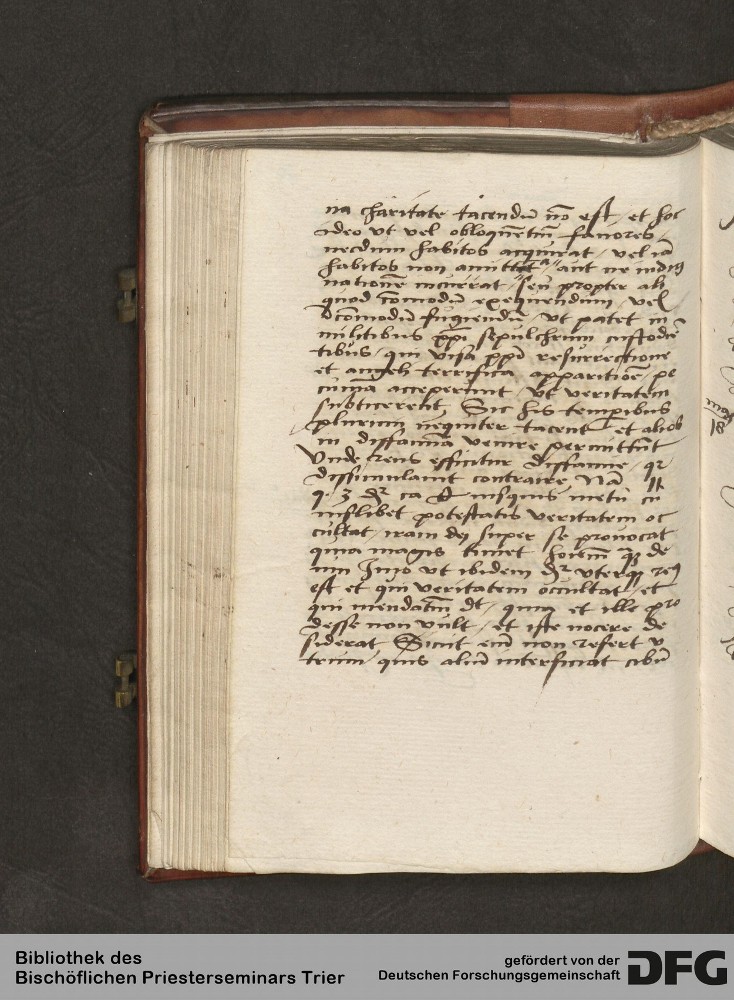 na charitate tacendū nō est, et hoc
ideo vt vel obloquētiū fauores
necdum habitos acquirat, vel iā
habitos non amittat, aut ne indig
nationē incurrat, seu propter ali
quod cōmodū exequendum, vel
īcōmodū fugiendū, vt patet in
militibus xp̄i sepulchrum custodiē
tibus, qui visa xp̄i resurrectione
et angeli terrifica apparitiōe, pe
cuniā acceperunt, vt veritatem
subticerent, Sic his temporibus
plurimi nequiter tacent et alios
in diffamiā venire permittūt
Vnde reus efficitur diffamie, qr
dissimulauit contraire, Nā 11
q. 3 dr̄ ca quisquis metū cu
iuslibet potestatis veritatem oc
cultat, iram dei super se prouocat
quia magis timet hoīem quā de
um Imo vt ibidem dr̄ vterque reus
est et qui veritatem occultat, et
qui mendatiū dt, quia et ille pro
desse non vult, et iste nocere de
siderat Sicut enī non refert v
trum quis aliū interficiat cibū
Bibliothek des
Bischöflichen Priesterseminars Trier
gefördert von der
Deutschen Forschungsgemeinschaft
DFG